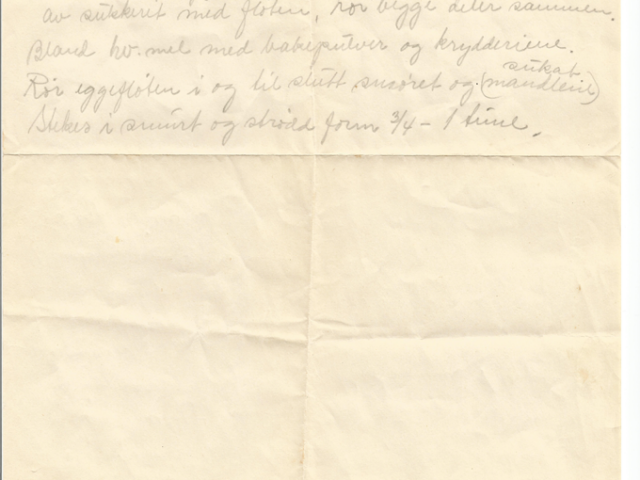 av sukkerit med fløten, rør begge deler sammen.
Bland hv. mel med bakepulver og krydderiene.
sukat
Rør eggefløten i og til slutt smøret og (mandlene)
Stekes i smurt og strødd form 3/4 - 1 time.